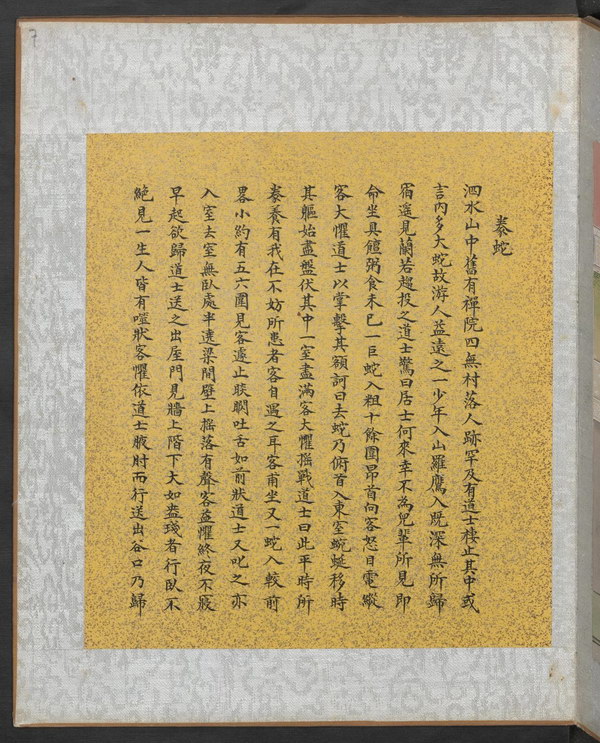 豢蛇
泗水山中舊有禪院四無村落人跡罕及有道士棲止其中或
言內多大蛇故游人益遠之一少年入山羅鷹入既深無所歸
宿遙見蘭若趨投之道士驚曰居士何來幸不為兒輩所見即
命坐具饘粥食未已一巨蛇入粗十餘圍昂首向客怒目電瞛
客大懼道士以掌擊其額訶曰去蛇乃俯首入東室蜿蜒移時
其軀始盡盤伏其中一室盡滿客大懼搖戰道士曰此平時所
豢養有我在不妨所患者客自遇之耳客甫坐又一蛇入較前
畧小約有五六圍見客遽止睒瞷吐舌如前狀道士又叱之亦
入室去室無臥處半遶梁間壁上搖落有聲客益懼終夜不寢
早起欲歸道士送之出座門見牆上階下大如盎琖者行臥不
絕見一生人皆有噬狀客懼依道士腋肘而行送出谷口乃歸
7